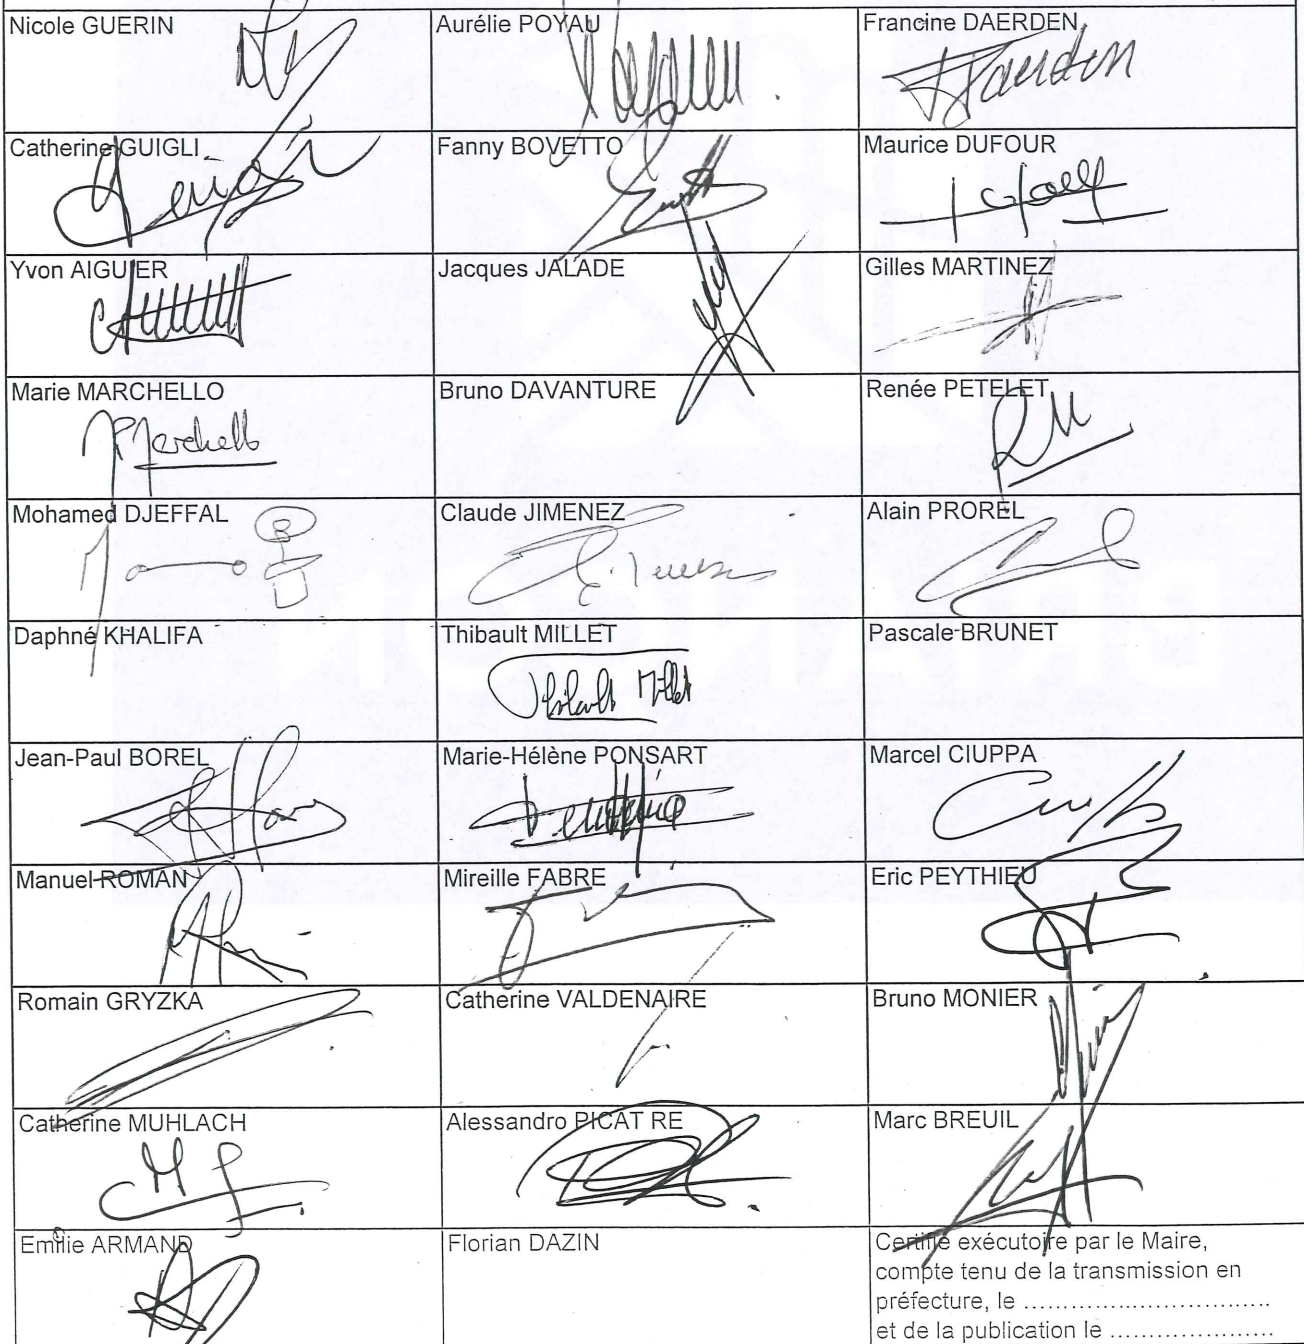 Nicole GUERIN
Aurélie POYAU
Francine DAERDEN
Daerden
Catherine GUIGLI
Fanny BOVETTO
Maurice DUFOUR
Yvon AIGUIER
Jacques JALADE
Gilles MARTINEZ
Marie MARCHELLO
Marchello
Bruno DAVANTURE
Renée PETELET
Mohamed DJEFFAL
Claude JIMENEZ
Alain PROREL
Daphné KHALIFA
Thibault MILLET
Thibault Millet
Pascale BRUNET
Jean-Paul BOREL
Marie-Hélène PONSART
Marcel CIUPPA
Manuel ROMAN
Mireille FABRE
Eric PEYTHIEU
Romain GRYZKA
Catherine VALDENAIRE
Bruno MONIER
Catherine MUHLACH
Alessandro PICAT RE
Marc BREUIL
Emilie ARMAND
Florian DAZIN
Certifié exécutoire par le Maire,
compte tenu de la transmission en
préfecture, le ..................................
et de la publication le ......................